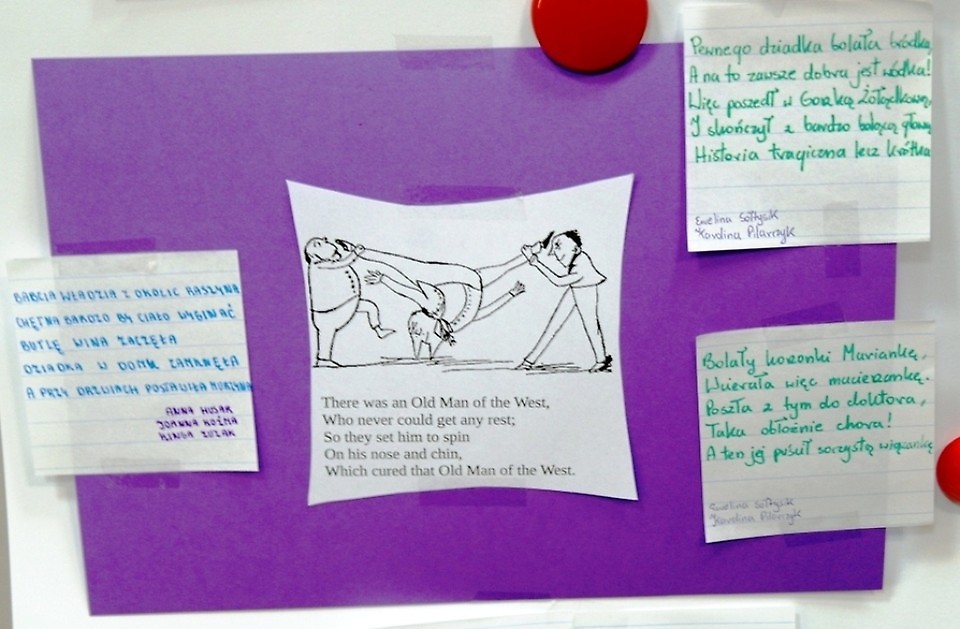 BABCIA WŁADZIA Z OKOLIC RASZYNA
CHĘTNA BARDZO BY CIAŁO WYGINAĆ
BUTLĘ WINA ZACZĘŁA
DZIADKA W DOMU ZAMKNĘŁA
A PRZY DRZWIACH POSTAWIŁA MURZYNA
ANNA HUSAK
JOANNA KOŹMA
KINGA ZUZAK
There was an Old Man of the West,
Who never could get any rest;
So they set him to spin
On his nose and chin,
Which cured that Old Man of the West.
Pewnego dziadka bolała bródka,
A na to zawsze dobra jest wódka!
Więc poszedł w Gorzką Żołądkową,
I skończył z bardzo bolącą głową
Historia tragiczna lecz krótka
Ewelina Sołtysik
Karolina Pilarczyk
Bolały koronki Mariankę,
Wcierała więc macierzankę.
Poszła z tym do doktora,
Taka obłożnie chora!
A ten jej puścił soczystą wiązankę
Ewelina Sołtysik
Karolina Pilarczyk